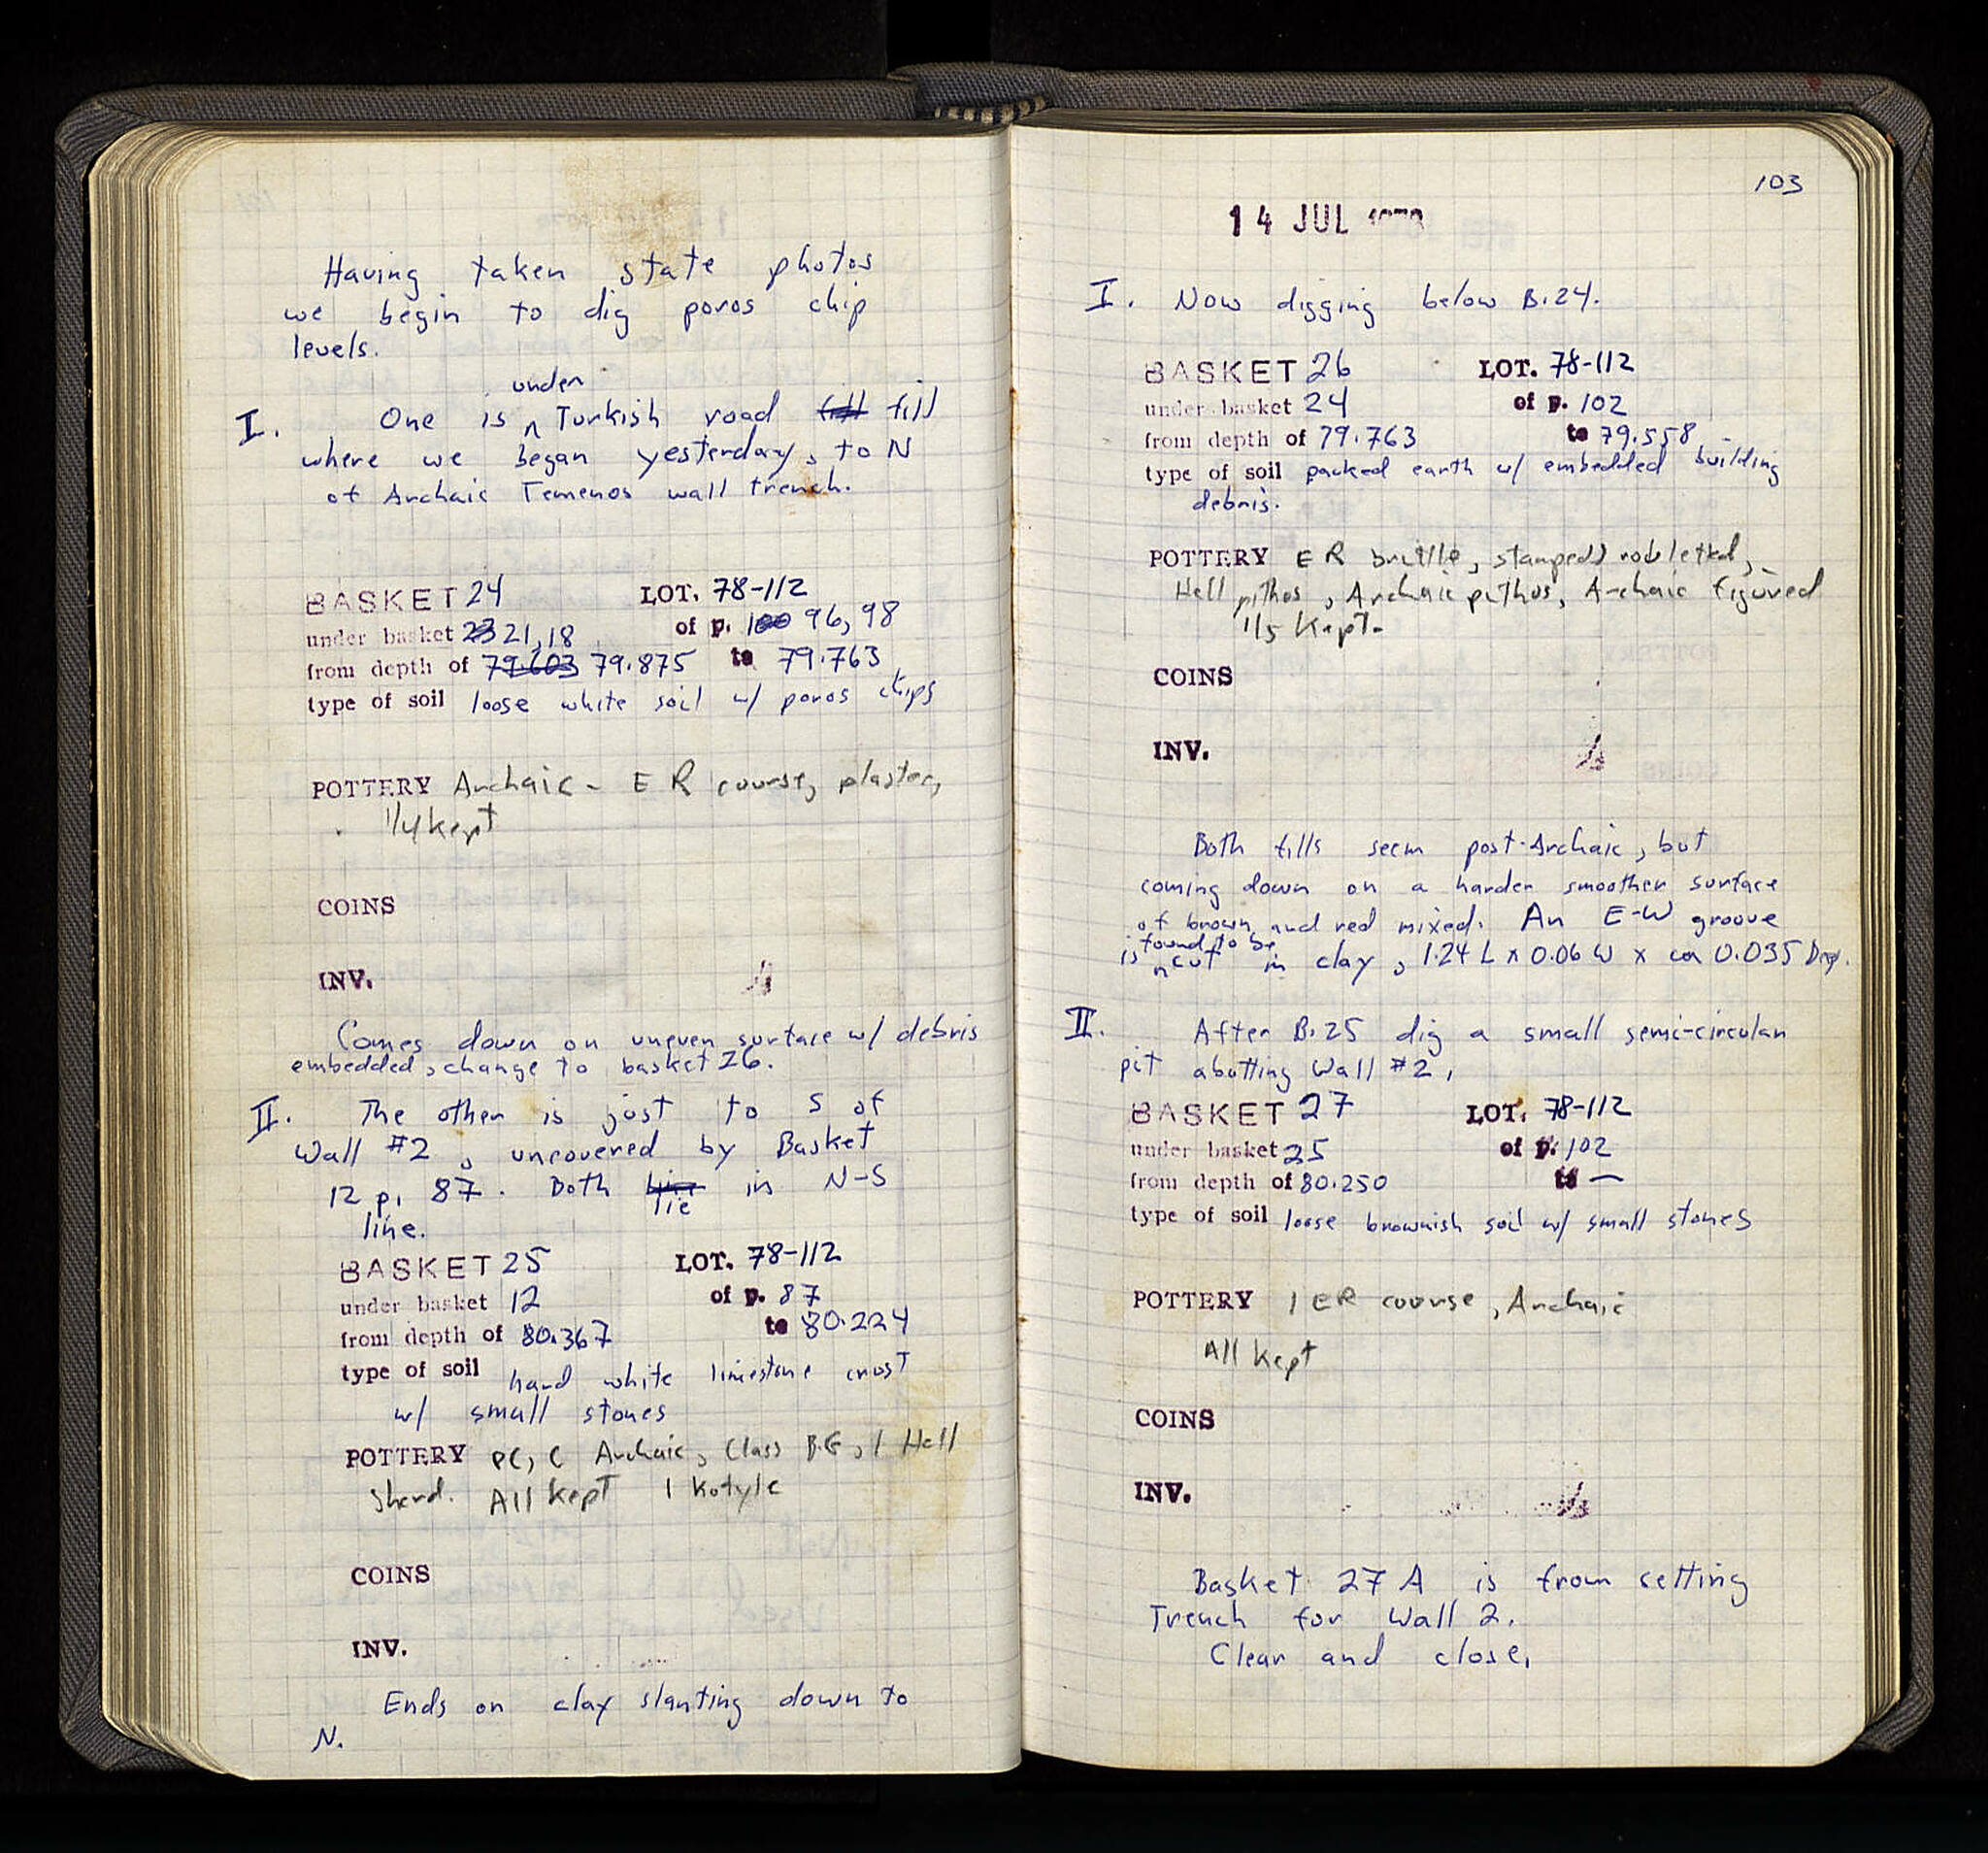 Having taken state photos
we begin to dig poros chip
levels.
under
I. One is ^ Turkish road fill
where we began yesterday, to N
of Archaic Temenos wall trench.
BASKET 24 LOT. 78-112
under basket 23 21,18 of p. 100 96, 98
from depth of 79.603 79.875 to 79.763
type of soil loose white soil w/ poros chips
POTTERY Archaic - ER course, plaster,
1/4 kept
COINS
INV.
Comes down on uneven surface w/ debris
embedded, change to basket 26.
II. The other is just to S of
Wall #2, uncovered by Basket
12 p. 87. Both line in N-S
lie
line.
BASKET 25 LOT. 78-112
under basket 12 of p. 87
from depth of 80.367 to 80.224
type of soil hard white limestone crust
w/ small stones
POTTERY PC, C Archaic, Class B.G, 1 Hell
Sherd. All kept 1 Kotyle
COINS
INV.
Ends on clay slanting down to
N.
103
14 JUL 1978
I. Now digging below B.24.
BASKET 26 LOT. 78-112
under basket 24 of p. 102
from depth of 79.763 to 79.558
type of soil packed earth w/ embedded building
debris.
POTTERY ER brittle, stamped
Hell pithos, Archaic pithos, Archaic figured
1/5 Kept.
COINS
INV.
Both fills seem post-Archaic, but
coming down on a harder smoother surface
of brown and red mixed. An E-W groove
found to be
is ^ cut in clay, 1.24 L x 0.06 W x ca 0.035 Deep.
II. After B.25 dig a small semi-circular
pit abutting Wall #2.
BASKET 27 LOT. 78-112
under basket 25 of p. 102
from depth of 80.250 to —
type of soil loose brownish soil w/ small stones
POTTERY 1 ER course, Archaic
All kept
COINS
INV.
Basket 27 A is from setting
Trench for Wall 2.
Clear and close.